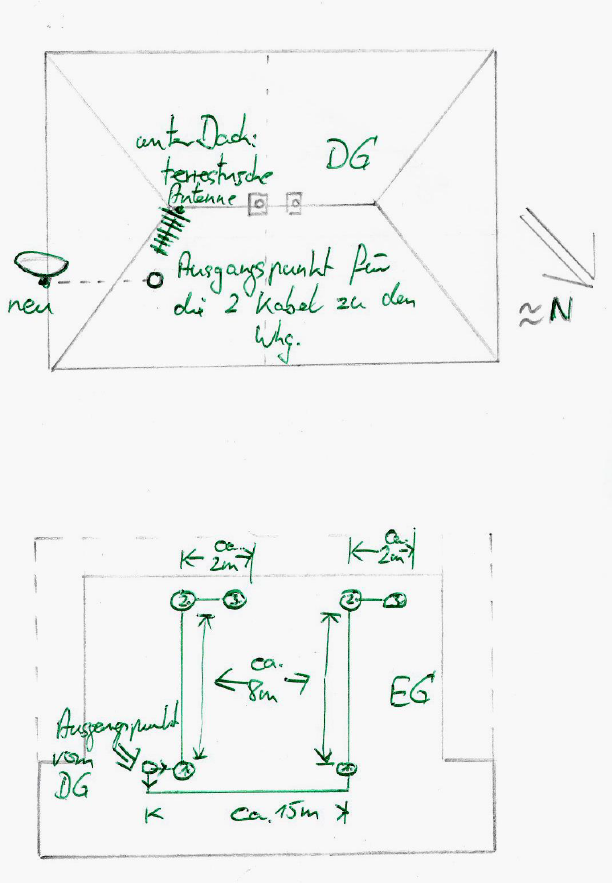 unter Dach:
terrestrische
Antenne
DG
neu
Ausgangspunkt für
die 2 Kabel zu den
Whg.
≈ N
ca.
2m
ca.
2m
2 3
2 3
ca.
8m
EG
Ausgangspunkt
vom
DG
1
1
ca. 15m